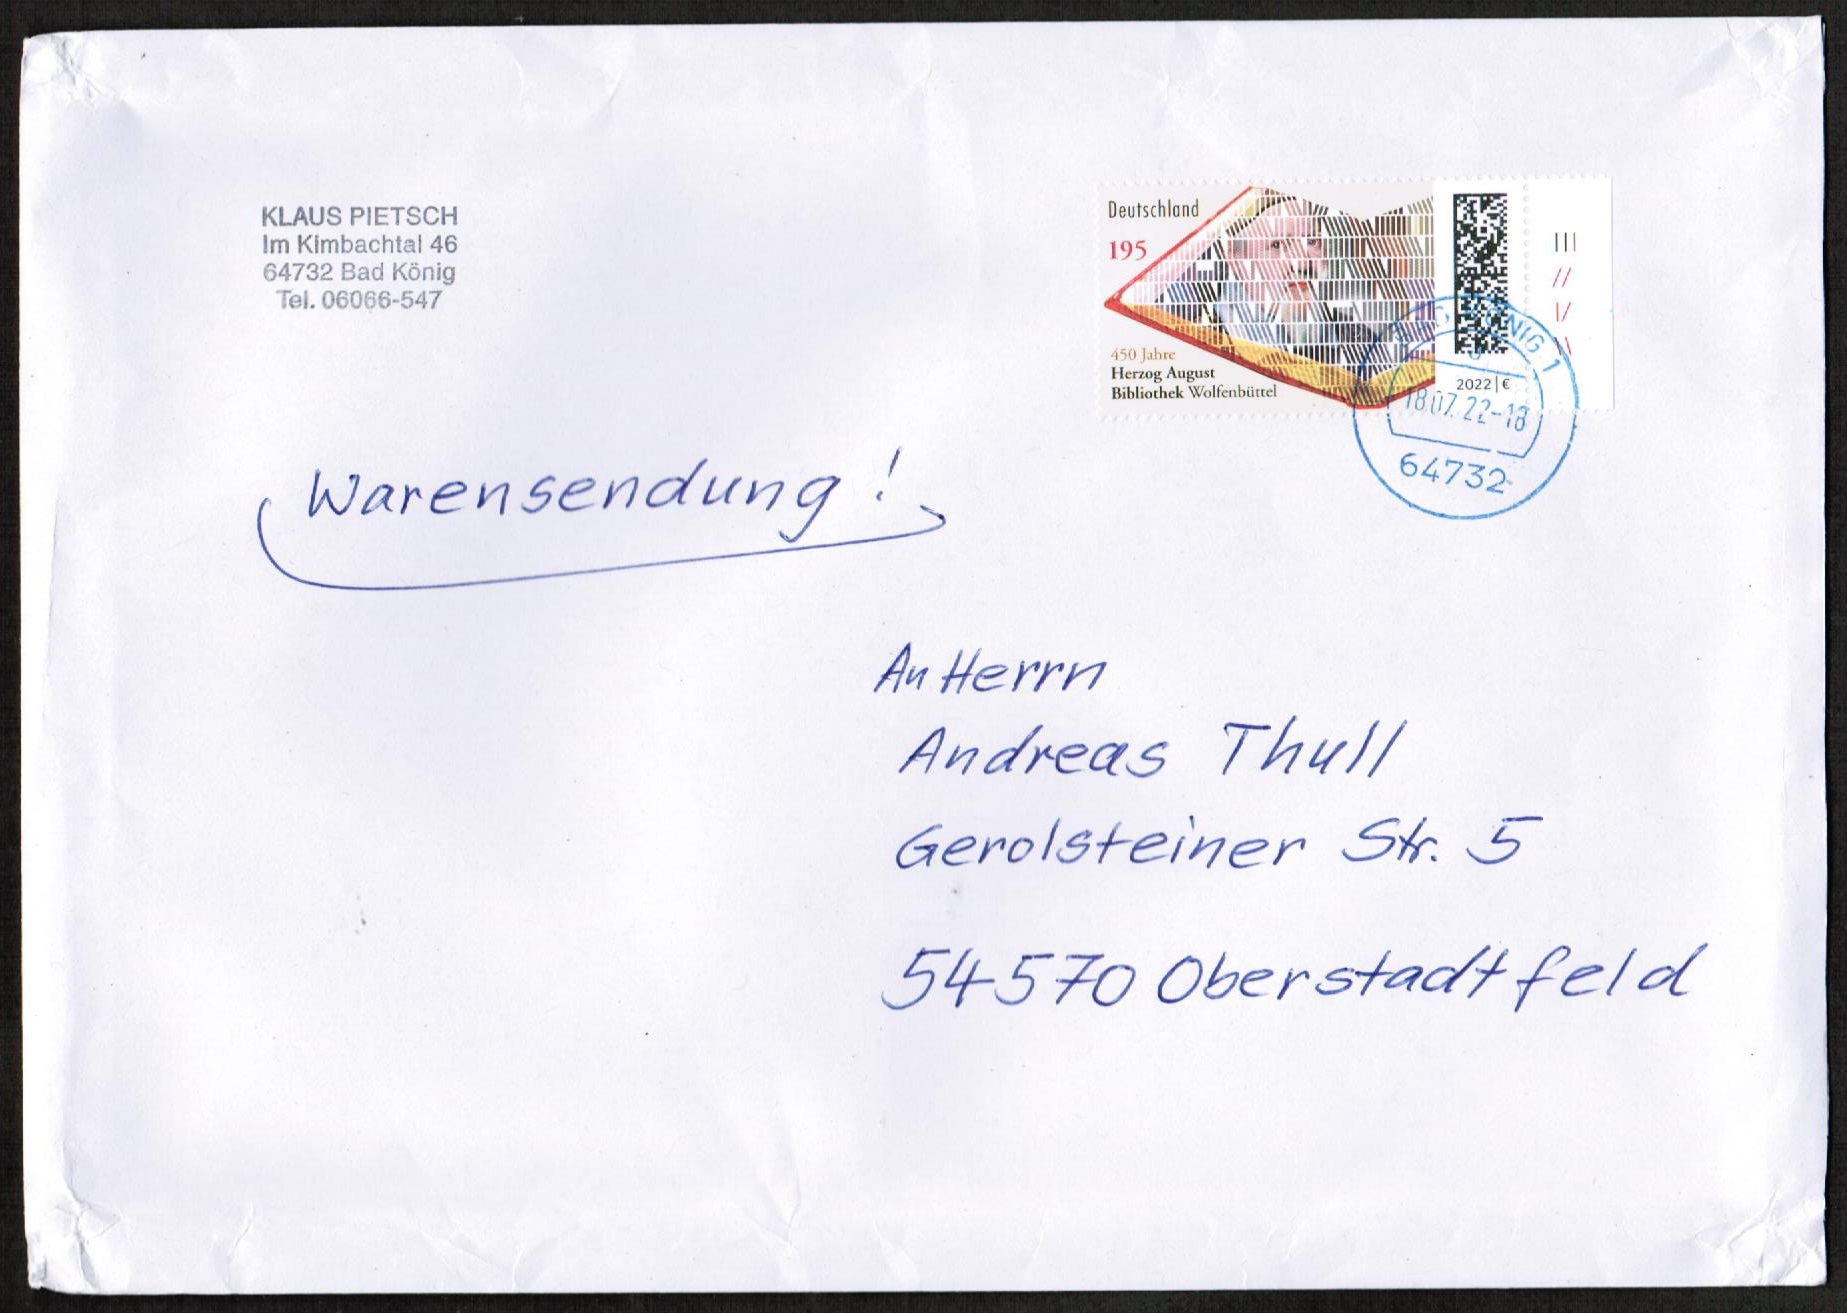 KLAUS PIETSCH
Im Kimbachtal 46
64732 Bad König
Tel. 06066-547
Deutschland
195
450 Jahre
Herzog August
Bibliothek Wolfenbüttel
2022 | €
18.07.22-18
64732
Warensendung!
An Herrn
Andreas Thull
Gerolsteiner Str. 5
54570 Oberstadtfeld